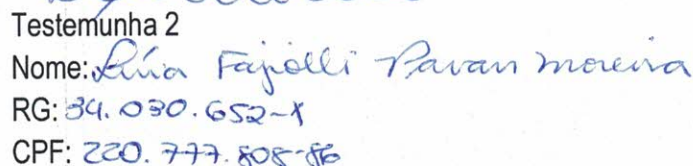 Testemunha 2
Nome: Lívia Fajolli Pavan Moreira
RG: 34.030.652-X
CPF: 220.777.808-86